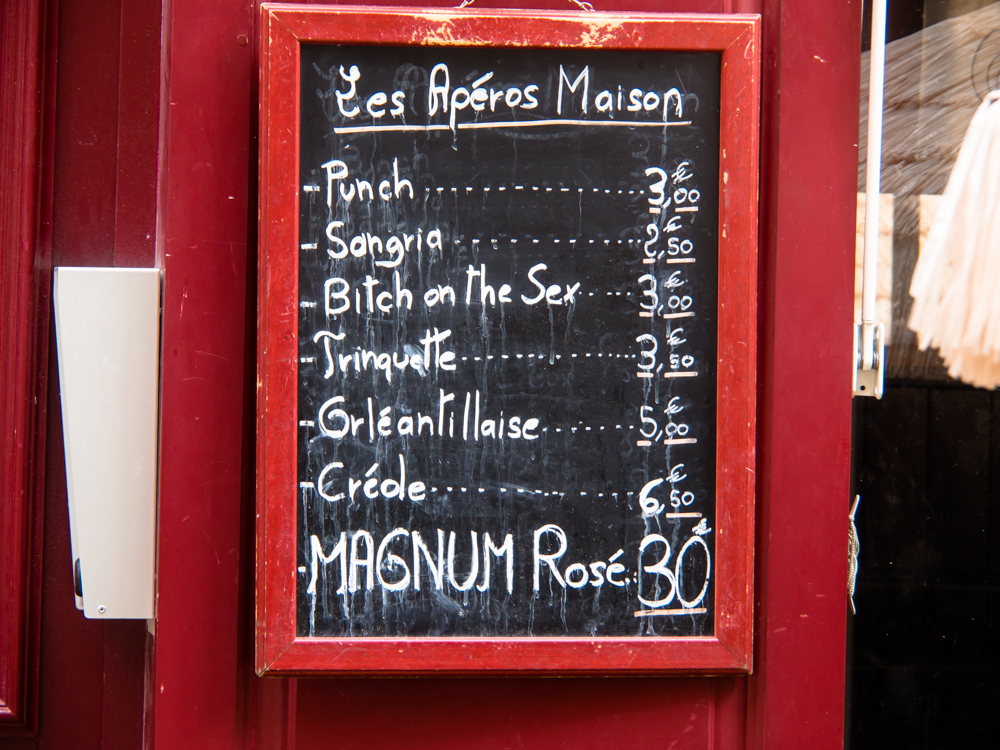 Les Apéros Maison
- Punch ........ 3,00€
- Sangria ........ 2,50€
- Bitch on the Sex ..... 3,00€
- Trinquette ........ 3,50€
- Orléantillaise ...... 5,00€
- Créole ........ 6,50€
- MAGNUM Rosé.. 30€